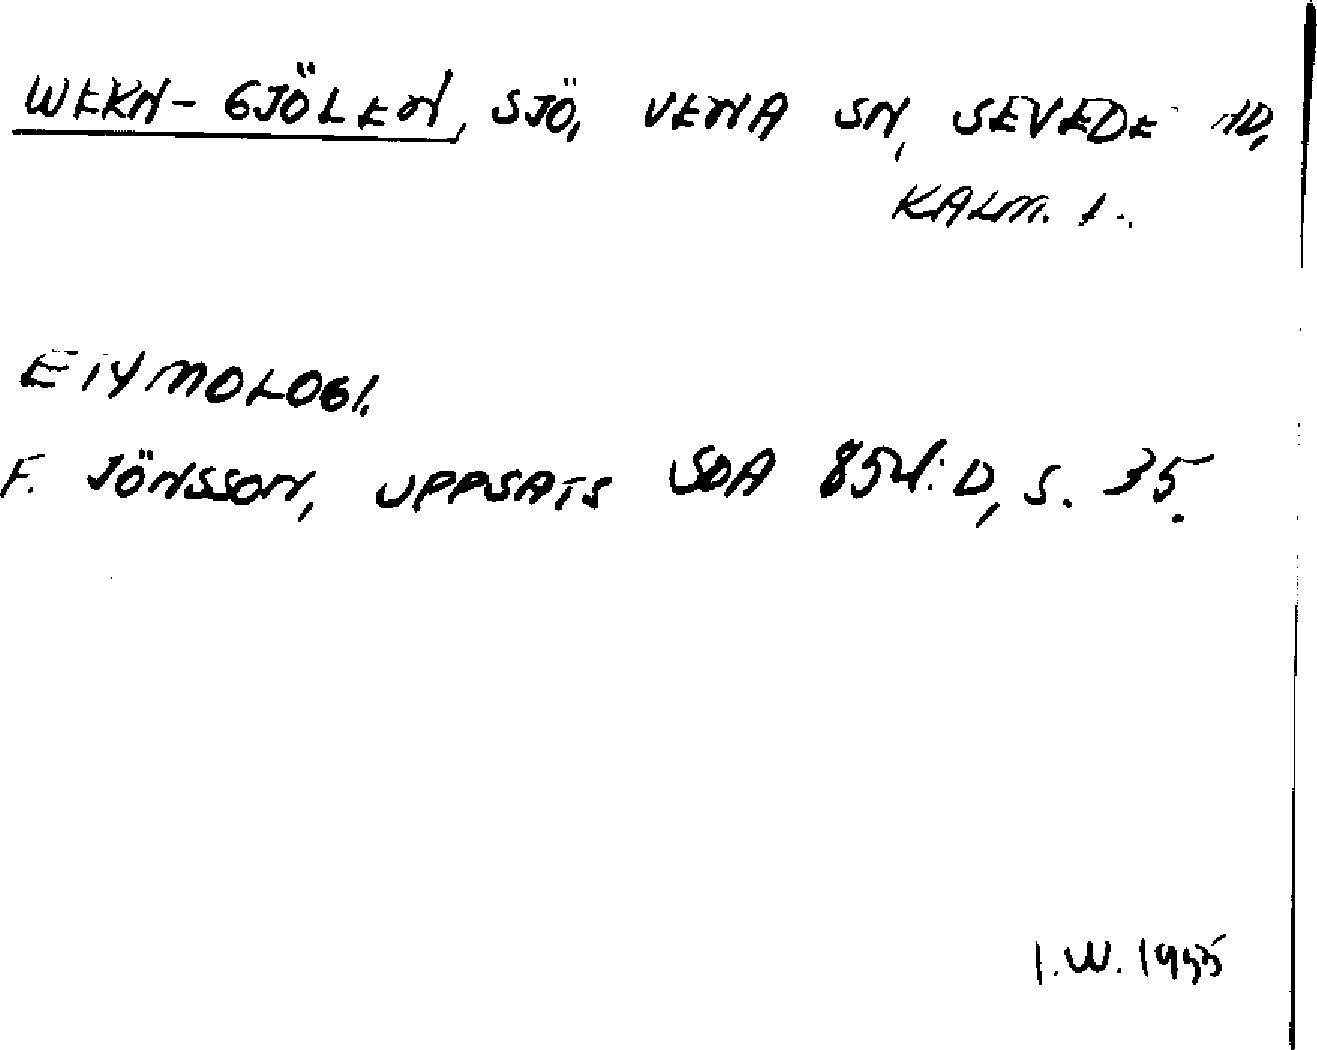 WEKN-GJÖLEN, SJÖ, VENA SN, SEVEDE HD,
KALM. L.
ETYMOLOGI.
F. JÖNSSON, UPPSATS SOA 854:D, S. 35.
I.W. 1955